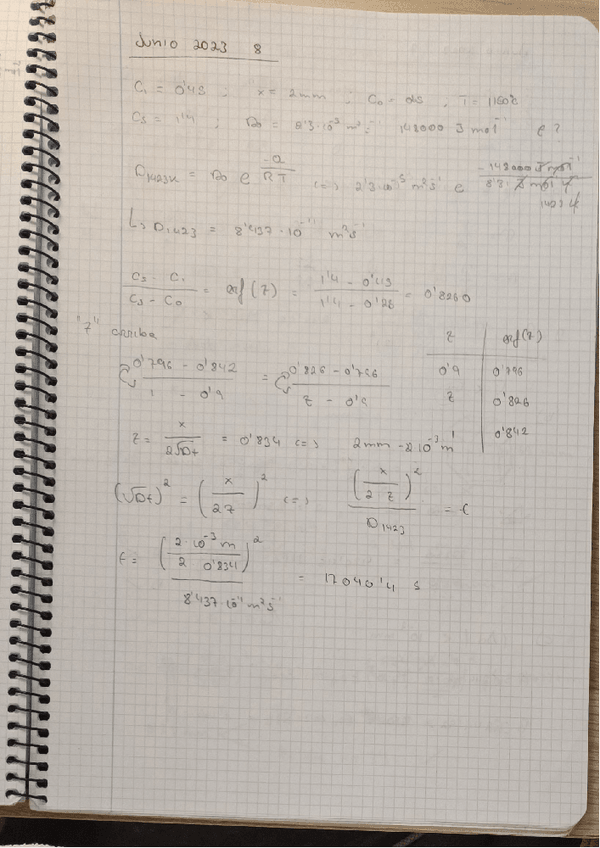 Junio 2023 8
C₁ = 0'45 ; x = 2mm ; C₀ = 25 , T = 1150ºC
Cs = 1'4 ; D₀ = 2'3·10⁻⁵ m² s⁻¹ 148000 J mol⁻¹ t?
D1423K = D₀ e^(-Q/RT) <=> 2'3·10⁻⁵ m²s⁻¹ e^(-148000 J mol⁻¹ / 8'3 · J mol 1423 K)
↳ D1423 = 8'437·10⁻¹¹ m²s⁻¹
(Cs - C₁)/(Cs - C₀) = erf(z) = (1'4 - 0'45)/(1'4 - 0'25) = 0'8260
"z" arriba
(0'796 - 0'842)/(1 - 0'9) = (0'826 - 0'796)/(z - 0'9)
z erf(z)
0'9 0'796
z 0'826
1 0'842
z = x/(2√Dt) = 0'834 <=> 2mm → 2·10⁻³ m
(√Dt)² = (x/2z)² <=> (x/2z)²/D1423 = t
t = (2·10⁻³ m/2 0'834)²/8'437·10⁻¹¹ m²s⁻¹ = 17040'4 s